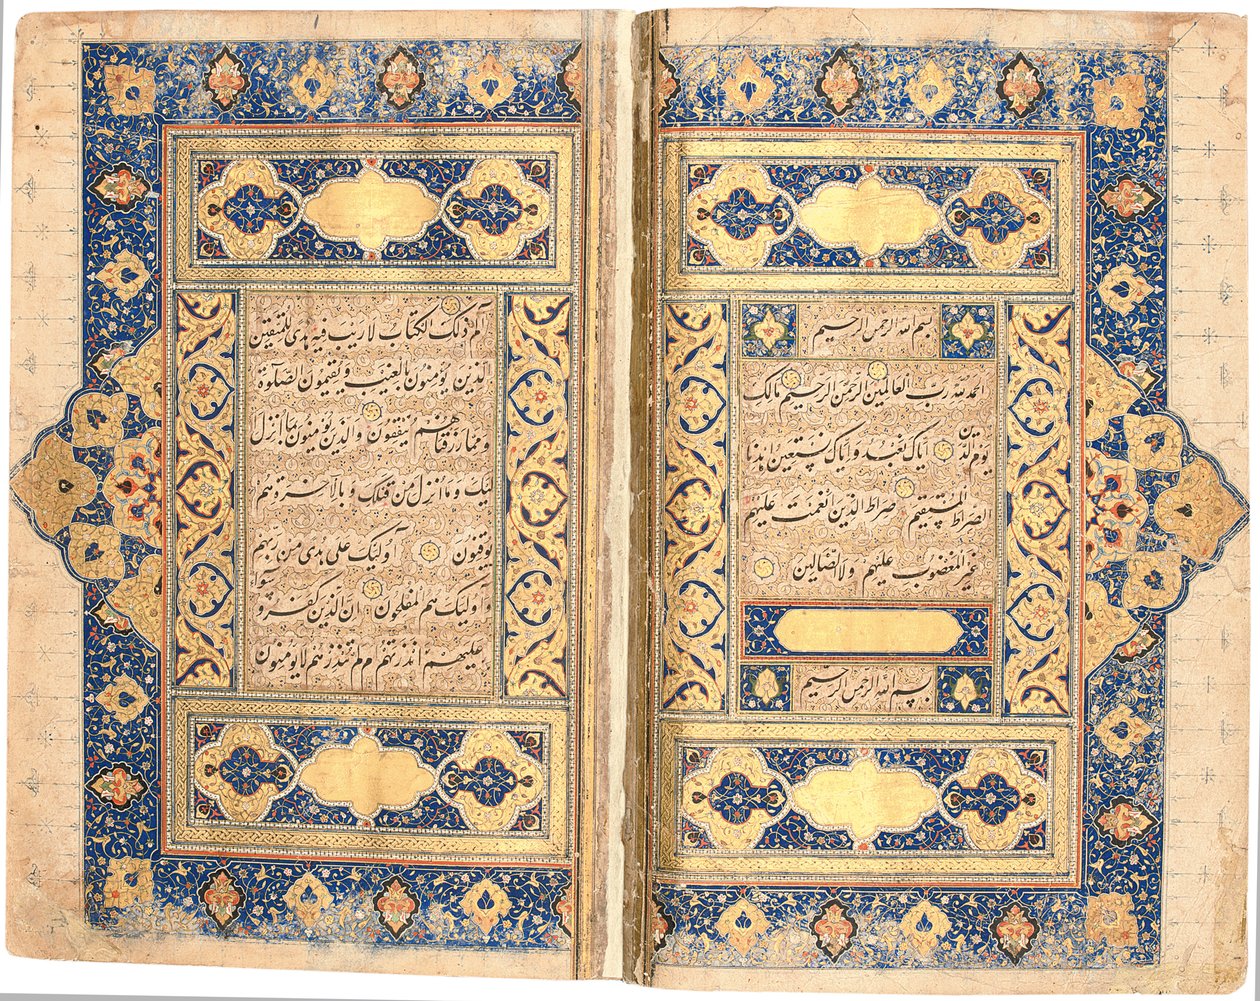 بسم الله الرحمن الرحیم
الحمد لله رب العالمین الرحمن الرحیم مالک
یوم الدین ایاک نعبد و ایاک نستعین اهدنا
الصراط المستقیم صراط الذین انعمت علیهم
غیر المغضوب علیهم ولا الضالین
بسم الله الرحمن الرحیم
الم ذلک الکتاب لا ریب فیه هدی للمتقین
الذین یؤمنون بالغیب و یقیمون الصلوة
و مما رزقناهم ینفقون والذین یؤمنون بما انزل
الیک و ما انزل من قبلک و بالآخرة هم
یوقنون اولئک علی هدی من ربهم
و اولئک هم المفلحون ان الذین کفروا سوآء
علیهم ءانذرتهم ام لم تنذرهم لا یؤمنون